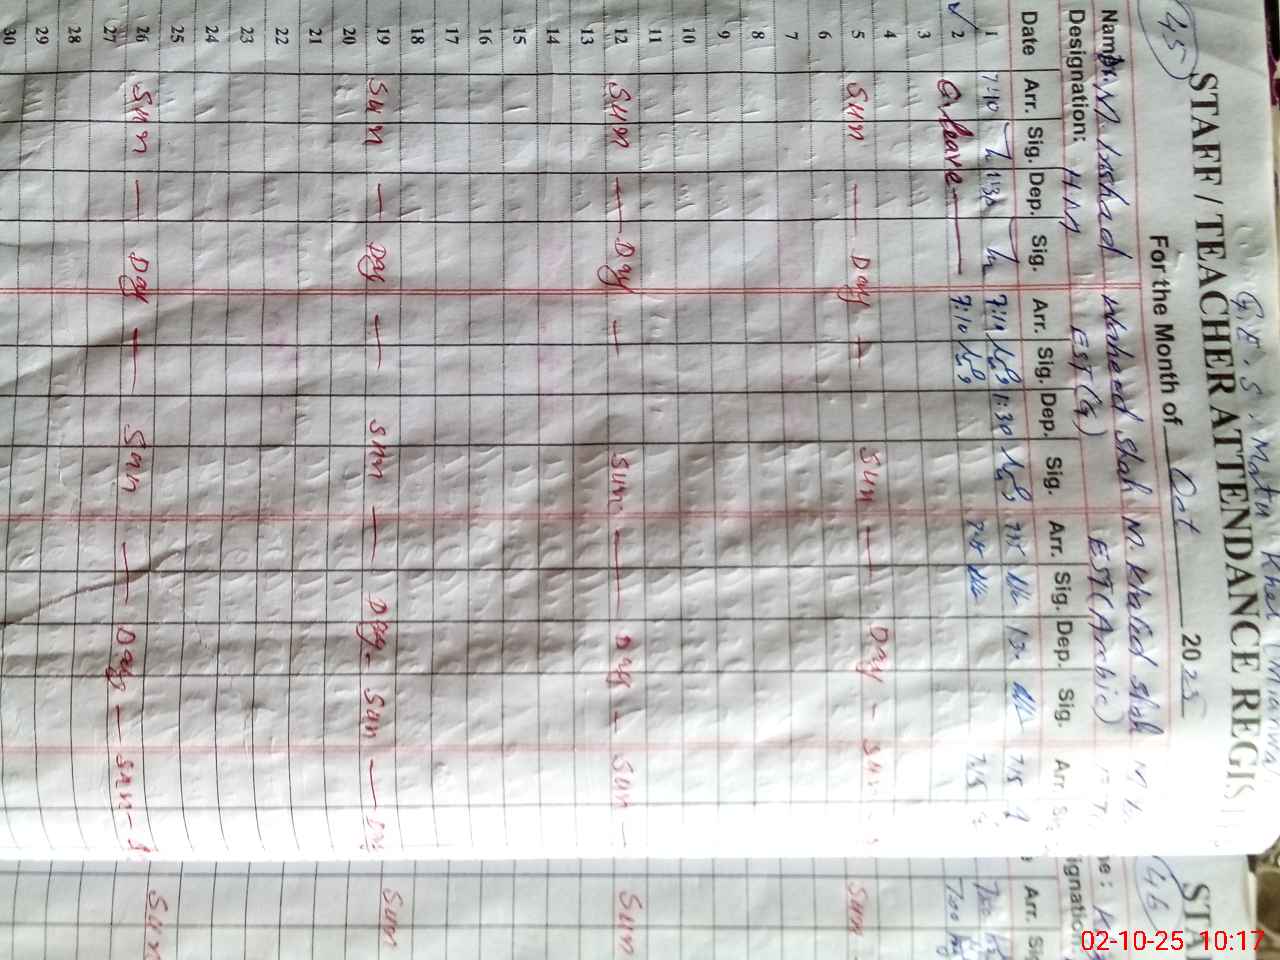 G.E.S. Matu Khel
STAFF / TEACHER ATTENDANCE REGIS
For the Month of Oct 2025
45
Name: M. Irshad Waheed Shah M. Khaled Shah
Designation: H.M EST (G) EST (Arabic)
Date Arr. Sig. Dep. Sig. Arr. Sig. Dep. Sig. Arr. Sig. Dep. Sig. Arr
1 7:10 1:30 7:10 1:30 7:15 1:30 7:15
2 On leave 7:10 7:15 7:15
3
4
5 Sun — Day — Sun — Day - Sun
6
7
8
9
10
11
12 Sun — Day — Sun — Day - Sun -
13
14
15
16
17
18
19 Sun — Day — Sun — Day. Sun — Day
20
21
22
23
24
25
26 Sun — Day — Sun — Day - Sun - S
27
28
29
30
STA
46
me:
ignation:
Arr. Si
7:00
7:00
Sun
Sun
Sun
Sun
02-10-25 10:17